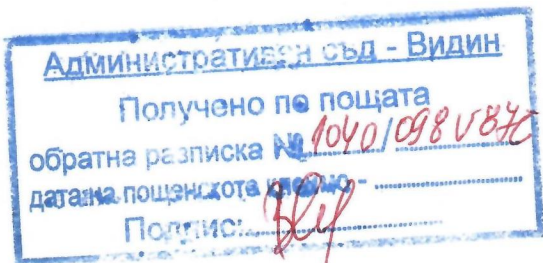 Административен съд - Видин
Получено по пощата
обратна разписка № 1040/098
дата на пощенското клеймо -
Подпис: